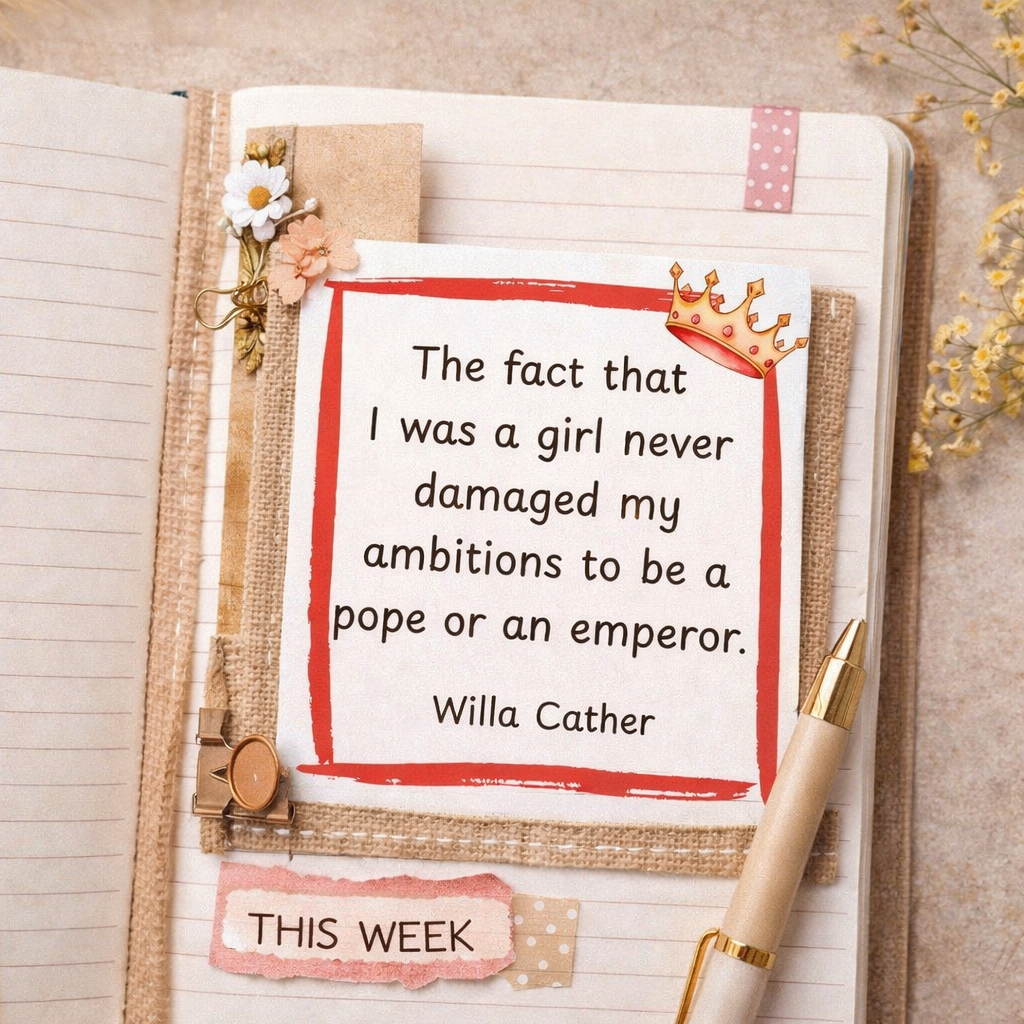 The fact that
I was a girl never
damaged my
ambitions to be a
pope or an emperor.
Willa Cather
THIS WEEK